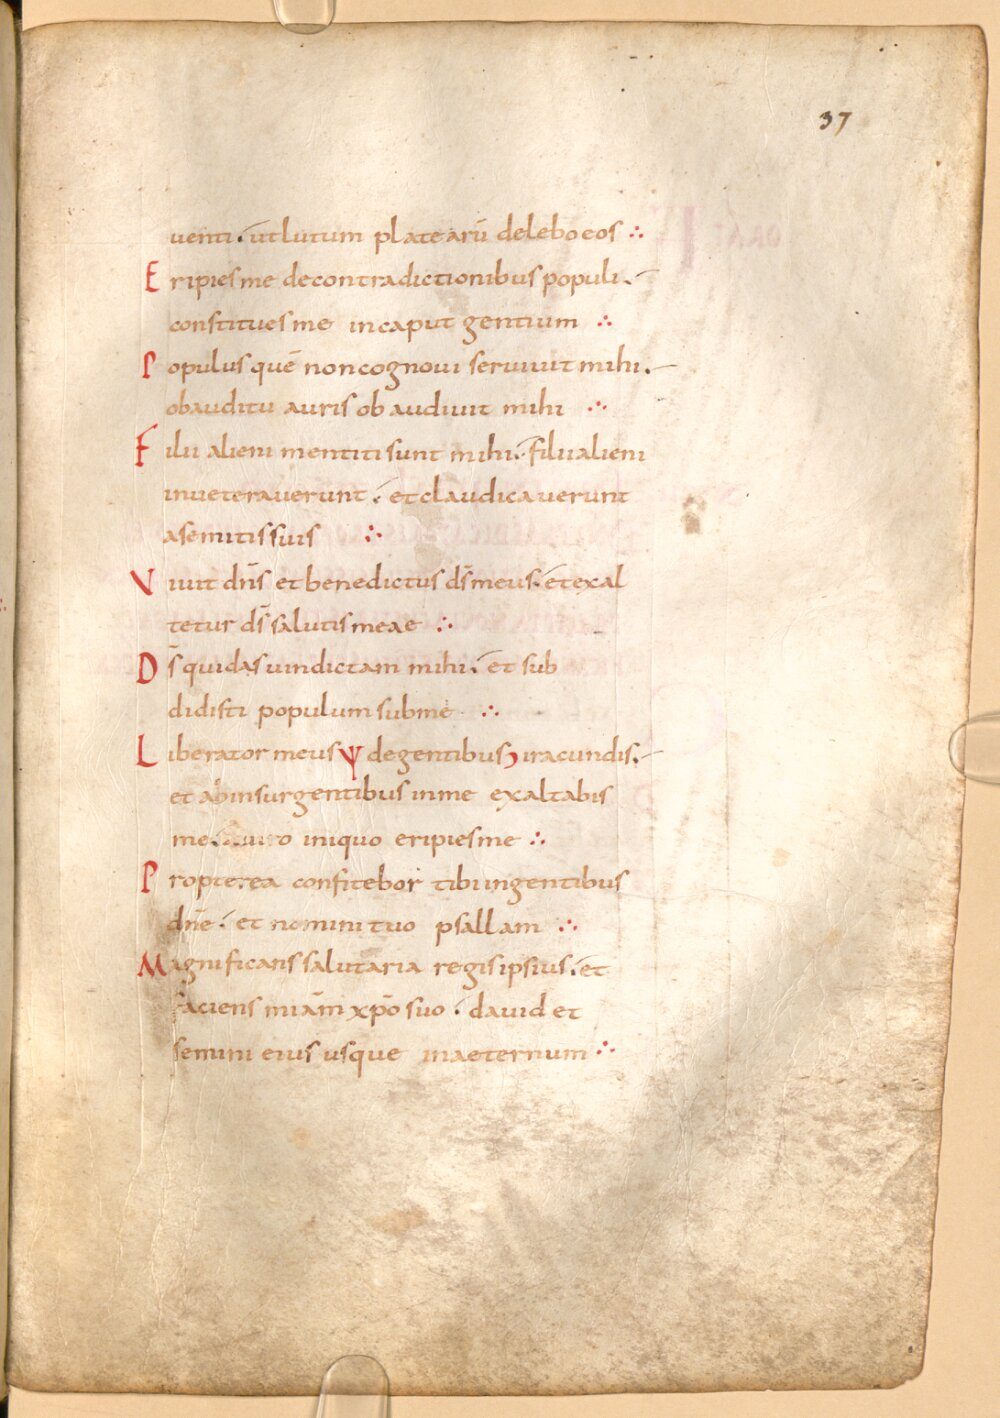 37
venti. ut lutum platearū delebo eos ∴
Eripies me de contradictionibus populi.
constitues me in caput gentium ∴
Populus quē non cognovi servivit mihi.
obauditu auris obaudivit mihi ∴
Filii alieni mentiti sunt mihi. filii alieni
inveteraverunt. et claudicaverunt
a semitis suis ∴
Vivit dñs et benedictus ds̄ meus. et exal
tetur ds̄ salutis meae ∴
Ds̄ qui das vindictam mihi. et sub
didisti populum sub me ∴
Liberator meus ψ de gentibus iracundis.
et ab insurgentibus in me exaltabis
me. viro iniquo eripies me ∴
Propterea confitebor tibi in gentibus
dñe. et nomini tuo psallam ∴
Magnificans salutaria regis ipsius. et
faciens miām xp̄o suo. david et
semini eius usque in aeternum ∴